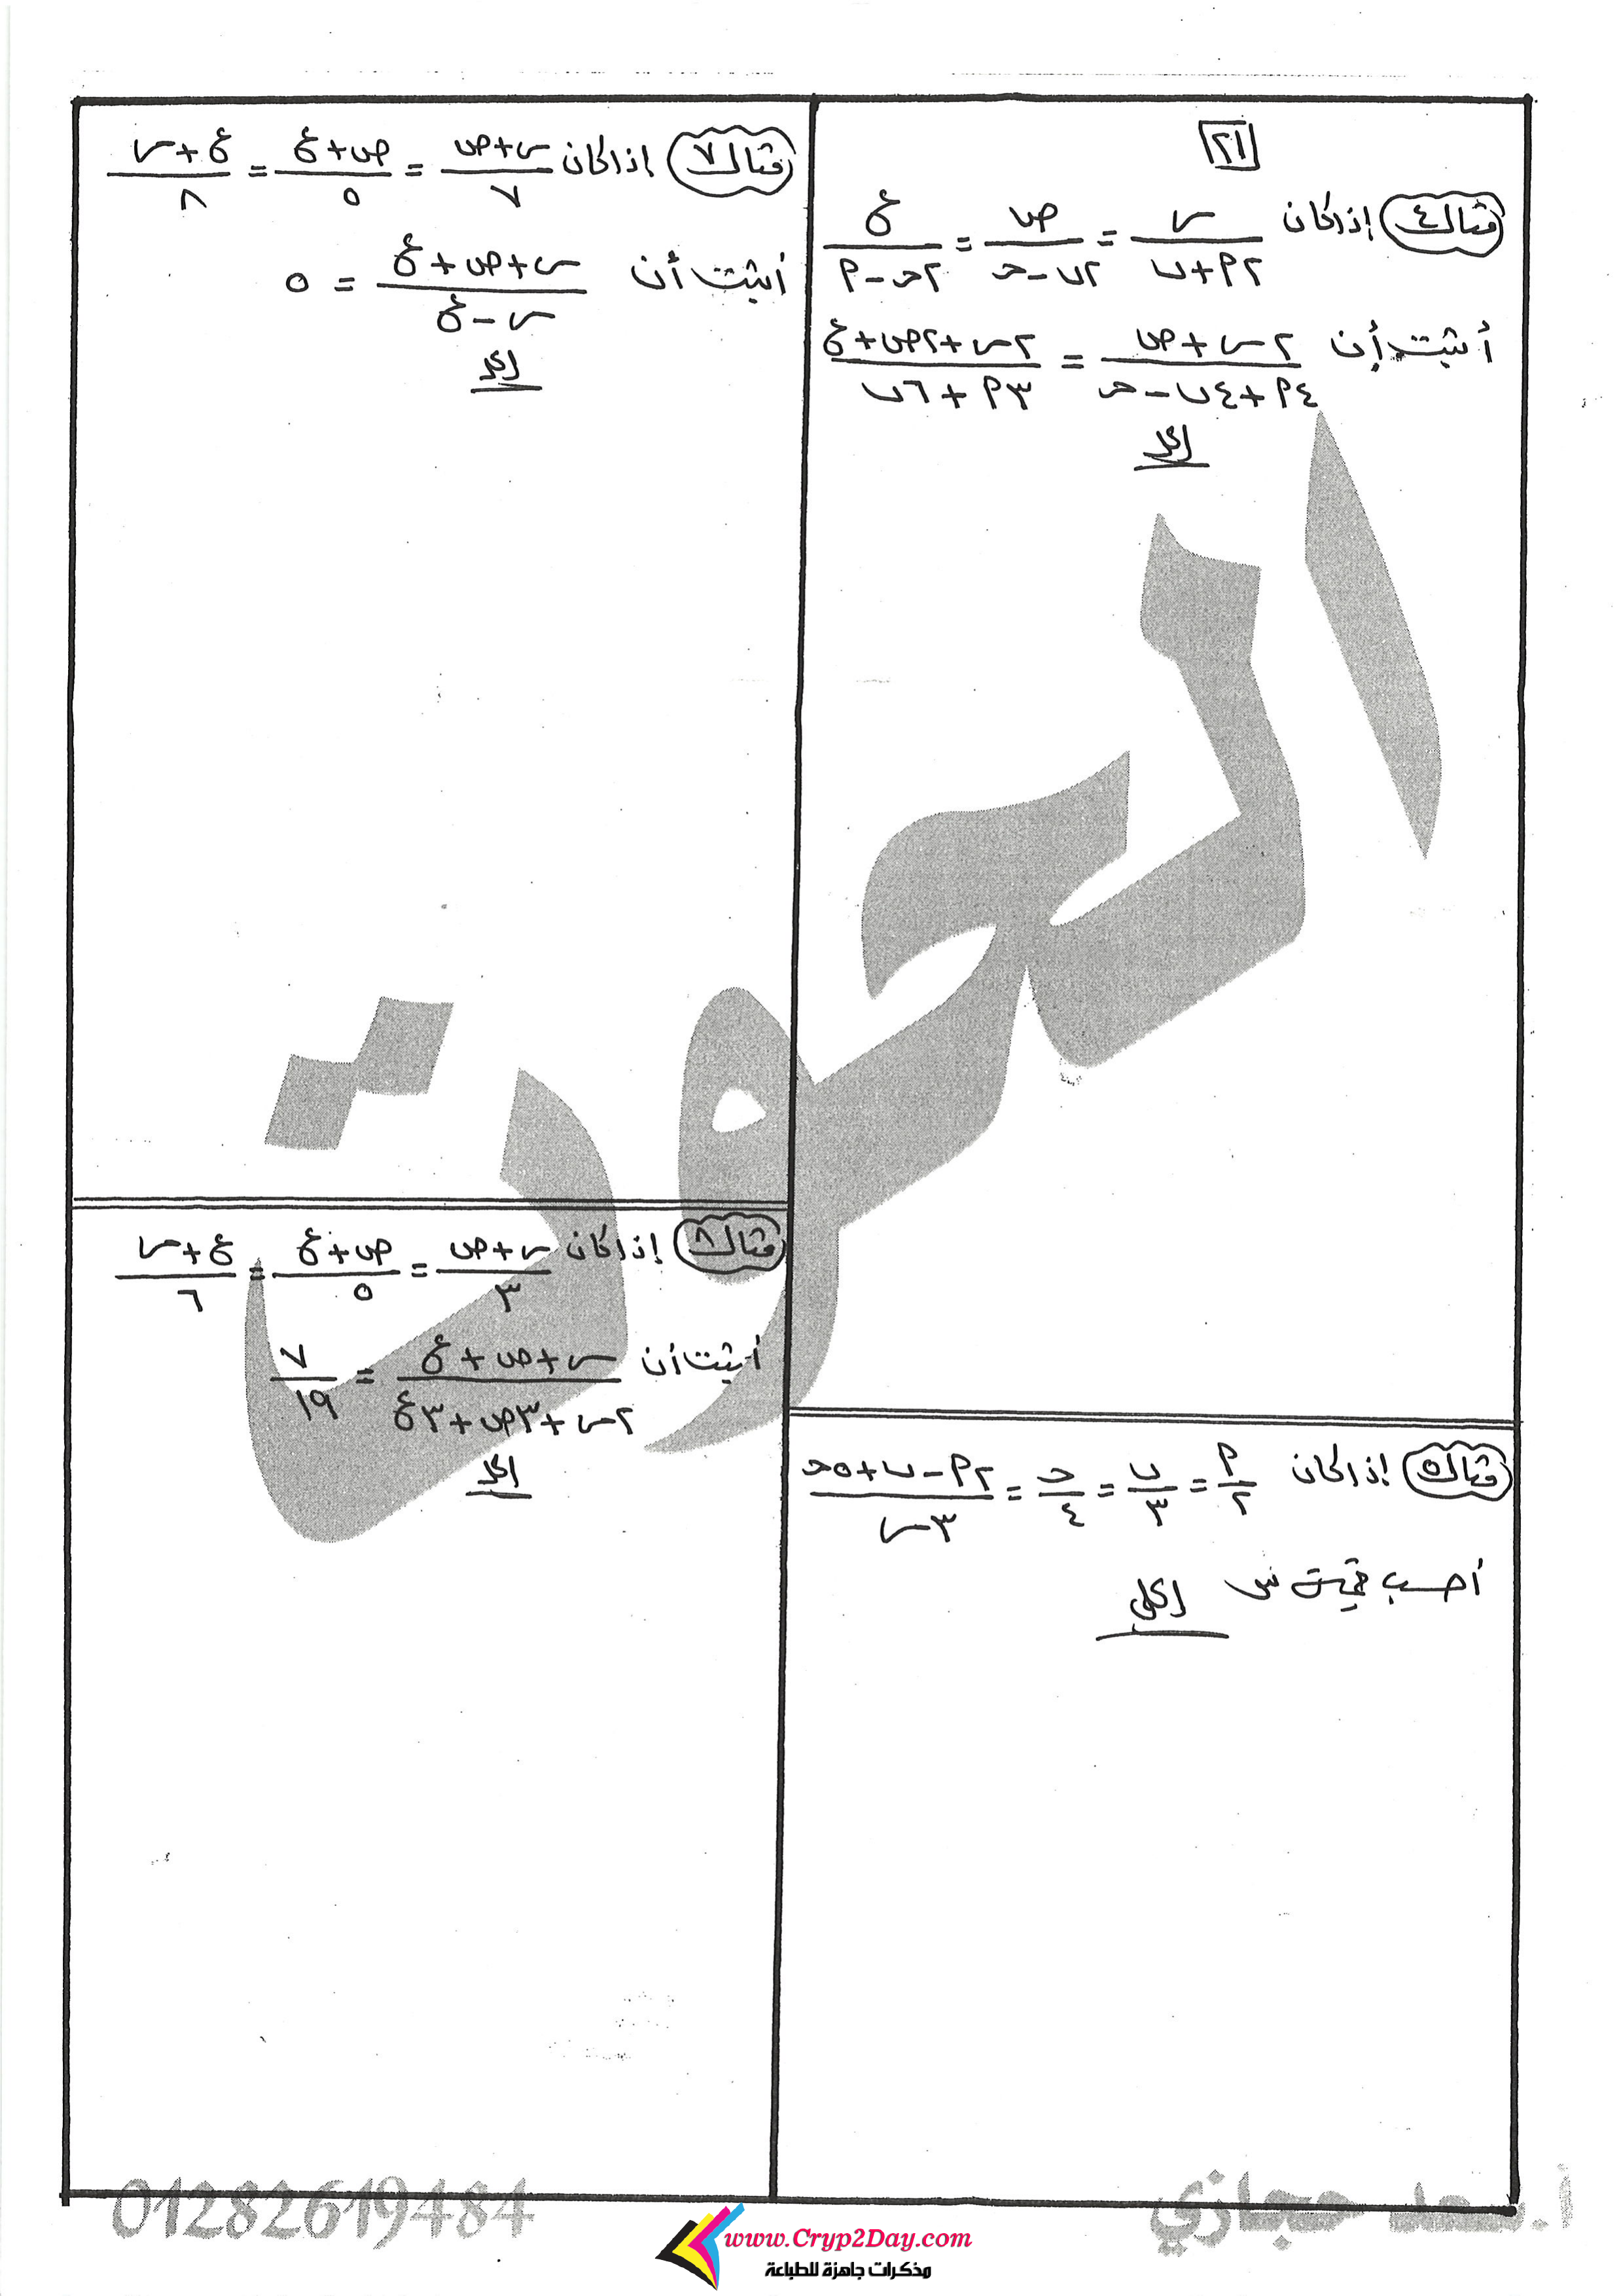 ٢١
مثال ٤ إذا كان س/(٢أ+ب) = ص/(٢ب-ج) = ع/(٢ج-أ)
أثبت أن (٢س+ص)/(٤أ+٤ب-ج) = (٢س+٢ص+ع)/(٣أ+٦ب)
الحل
مثال ٥ إذا كان أ/٢ = ب/٣ = ج/٤ = (٢أ-ب+٥ج)/٣س
أحسب قيمة س الحل
مثال ٧ إذا كان (س+ص)/٧ = (ص+ع)/٥ = (ع+س)/٨
أثبت أن (س+ص+ع)/(س-ع) = ٥
الحل
مثال ٨ إذا كان (س+ص)/٣ = (ص+ع)/٥ = (ع+س)/٦
أثبت أن (س+ص+ع)/(٢س+٣ص+٣ع) = ٧/١٩
الحل
العوت
أ.سعد حجازي
01282619484
www.Cryp2Day.com
مذكرات جاهزة للطباعة